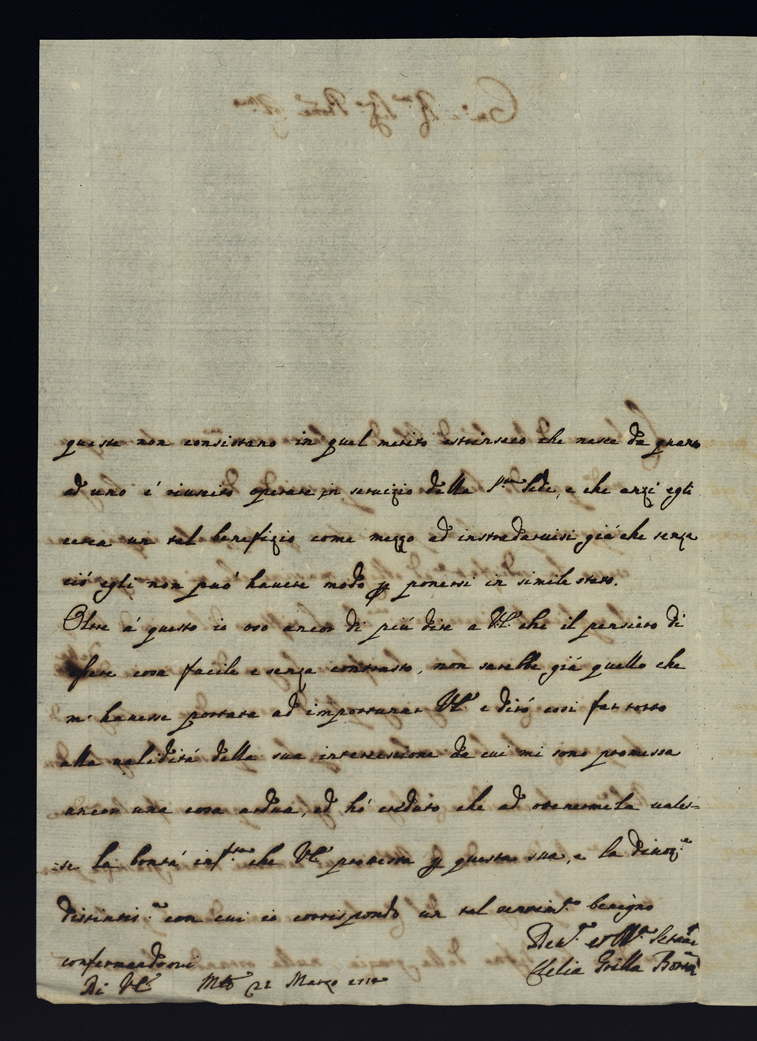 queste non consistano in quel merito estrinseco che nasce da quanto
ad uno é riuscito operare in servizio della S.ta Sede, e che anzi egli
cerca un tal benefizio come mezzo ad instradarvisi giá che senza
ció egli non puó havere modo p ponersi in simile stato.
Oltre á questo io oso ancor di piú dire a VE che il pensiero di
fare cosa facile e senza contrasto, non sarebbe giá quello che
m' havesse portata ad importunar VE e diró cosi far torto
alla validitá della sua intercessione da cui mi sono promessa
ancor una cosa ardua, ed hó creduto che ad ottenermela vales-
se la bontá che VE protesta p questa sua, e la divoz.e
distintiss.a con cui io corrispondo un tal benigno
confermandomi
Di VE 22 Marzo
Clelia Grilla Borro